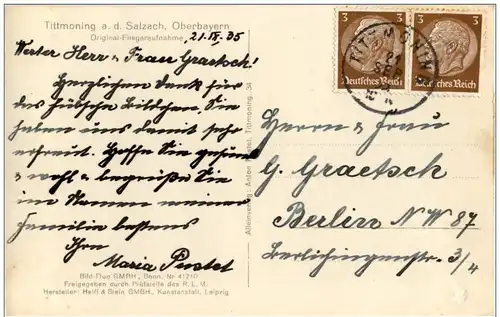 Tittmoning a. d. Salzach, Oberbayern
Original-Fliegeraufnahme,
21. IX. 35
Werter Herr u. Frau Graetsch!
Herzlichen Dank für
das hübsche Bildchen. Sie
haben uns damit sehr
erfreut. Hoffe Sie gesund
& wohl & begrüße Sie
im Namen meiner
Familie bestens
Ihre
Maria Pustet
Bild-Flug GMBH., Bonn, Nr 41210
Freigegeben durch Prüfstelle des R. L. M.
Hersteller: Heiff & Stein GMBH., Kunstanstalt, Leipzig
Alleinverlag: Anton Pustet, Tittmoning. 34
3 3
Deutsches Reich Deutsches Reich
TITTMONING
21
Herrn u. Frau
G. Graetsch
Berlin NW 87
Berlichingenstr. 3/4